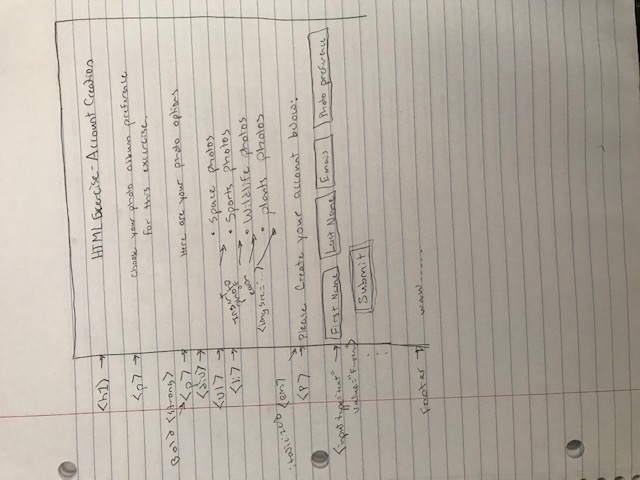 <h1> HTML Exercise - Account Creation
<p> Choose your photo album preference
for this exercise.
Bold <strong>
<p> Here are your photo options
<div>
<ul> • Space photos
<li> • Sports photos
• Wildlife photos
• plants photos
Insert
photo
of
each
<img src="...">
<em>
<p> Please Create your account below:
<input type="text" First Name Last Name Email Photo preference
Submit
Footer www......